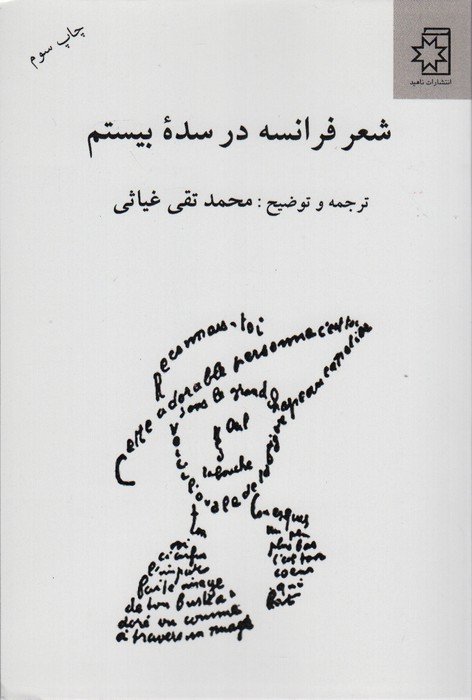 چاپ سوم
انتشارات ناهید
شعر فرانسه در سدهٔ بیستم
ترجمه و توضیح : محمد تقی غیاثی
Reconnais-toi
Cette adorable personne c'est toi
sous le grand chapeau canotier
Œil
la bouche
Voici l'ovale de ta figure
Ton
cou exquis
un peu
plus bas
c'est ton
cœur
qui
bat
ci enfin
l'impar
faite image
de ton buste a
doré vu comme
à travers un nuage